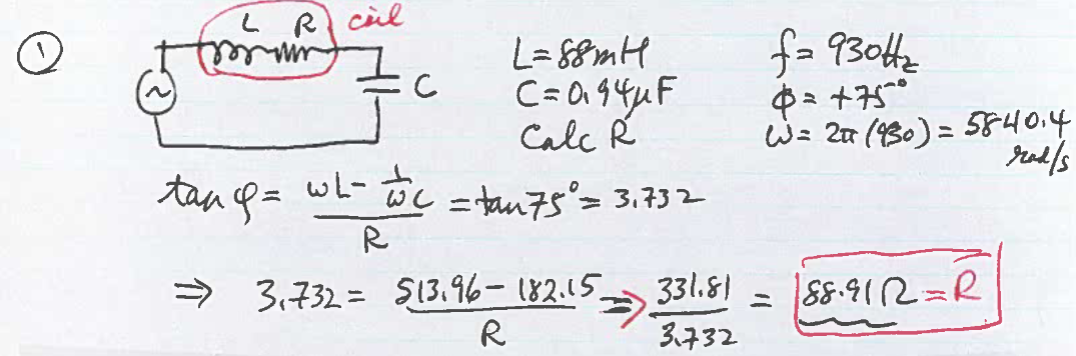 ① L R coil
C
L = 88mH f = 930Hz
C = 0.94μF φ = +75°
Calc R ω = 2π(930) = 5840.4 rad/s
tan φ = (ωL - 1/ωC)/R = tan 75° = 3.732
⇒ 3.732 = (513.96 - 182.15)/R ⇒ 331.81/3.732 = 88.91Ω = R